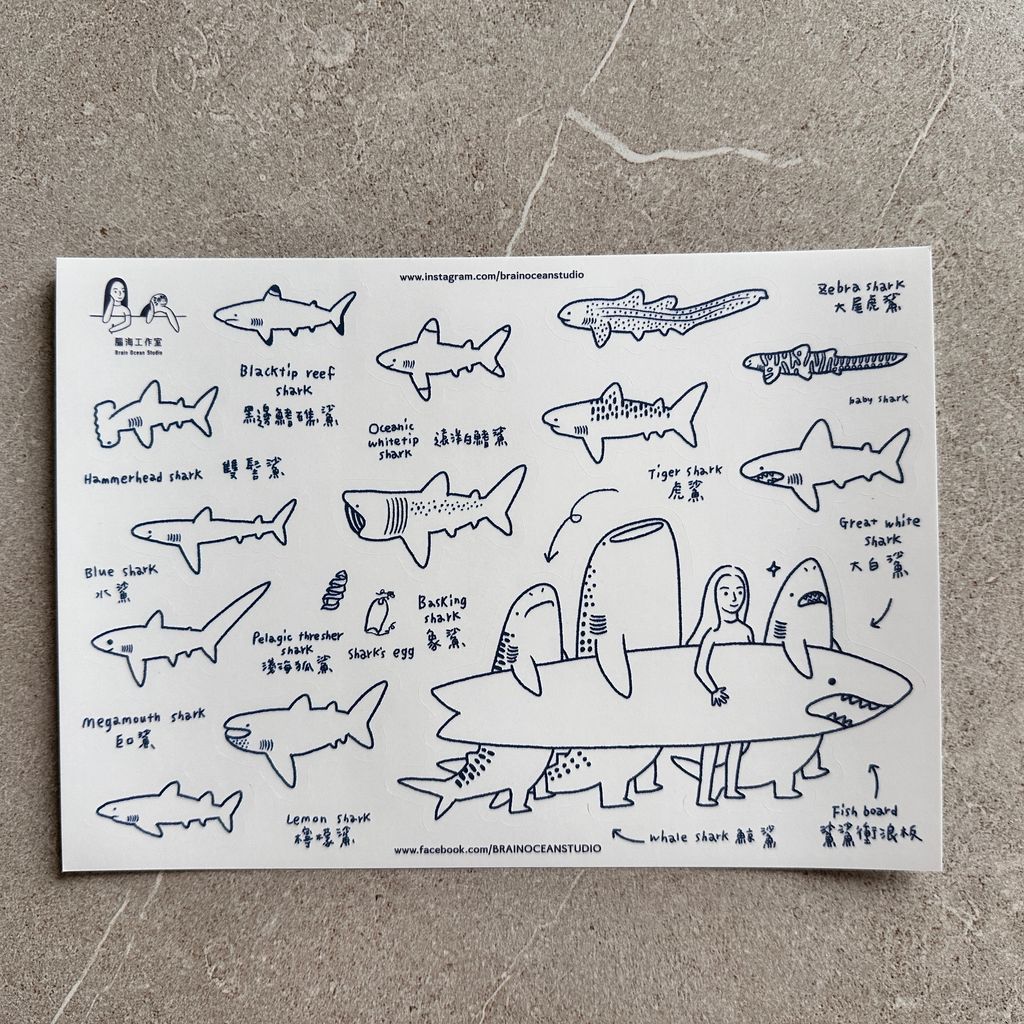 www.instagram.com/brainoceanstudio
腦海工作室
Brain Ocean Studio
Zebra shark
大尾虎鯊
baby shark
Blacktip reef
shark
黑邊鰭礁鯊
Oceanic
whitetip
shark
遠洋白鰭鯊
Hammerhead shark 雙髻鯊
Tiger shark
虎鯊
Great white
shark
大白鯊
Blue shark
水鯊
Basking
shark
象鯊
Pelagic thresher
shark
淺海狐鯊
Shark's egg
Megamouth shark
巨口鯊
Lemon shark
檸檬鯊
whale shark 鯨鯊
Fish board
鯊鯊衝浪板
www.facebook.com/BRAINOCEANSTUDIO